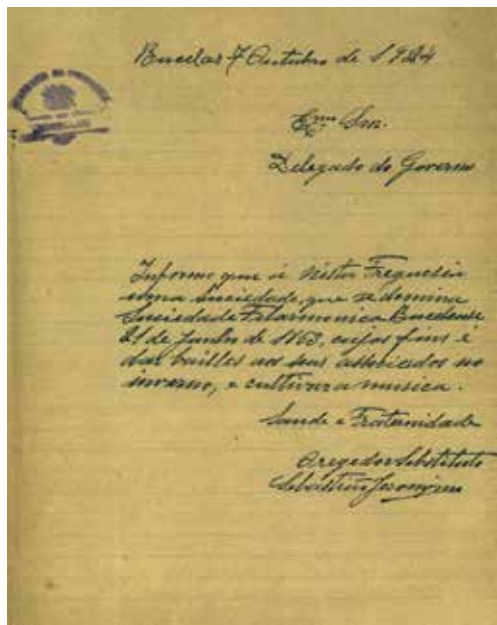 Bucelas 7 Outubro de 1924
Exmo Snr.
Delegado do Governo
Informo que á nésta Freguesia
uma Suciedade, que se domina
Suciedade Filarmonica Bucelense
21 de Junho de 1863, cujos fins é
dar bailles aos seus associados no
inverno, e cultivar a musica.
Saude e Fraternidade
O regedor Sebstituto
Sebastião Jeronimo